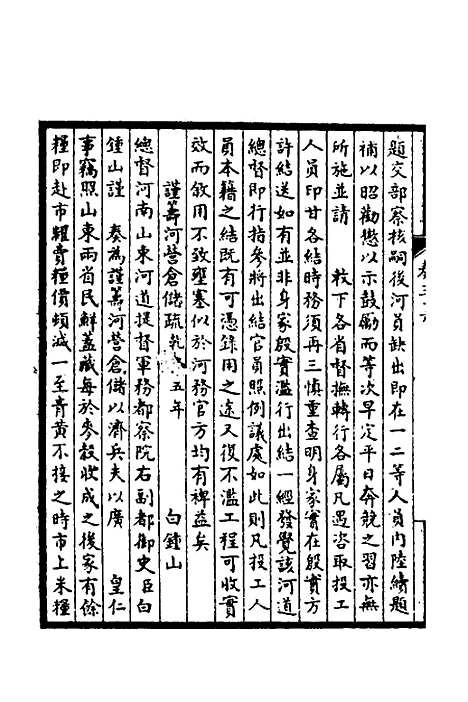 題交部察核嗣後河員缺出即在一二等人員內陸續題
補以昭勸懲以示鼓勵而等次早定平日奔競之習亦無
所施並請　敕下各省督撫轉行各屬凡遇咨取投工
人員印甘各結時務須再三慎重查明身家實在殷實方
許結送如有並非身家殷實濫行出結一經發覺該河道
總督即行指參將出結官員照例議處如此則凡投工人
員本籍之結既有可憑錄用之途又復不濫工程可收實
效而敘用不致壅塞似於河務官方均有裨益矣
謹籌河營倉儲疏乾隆五年　白鍾山
總督河南山東河道提督軍務都察院右副都御史臣白
鍾山謹　奏為謹籌河營倉儲以濟兵夫以廣　皇仁
事竊照山東兩省民鮮蓋藏每於麥穀收成之後家有餘
糧即赴市糶賣糧價頓減一至青黃不接之時市上米糧